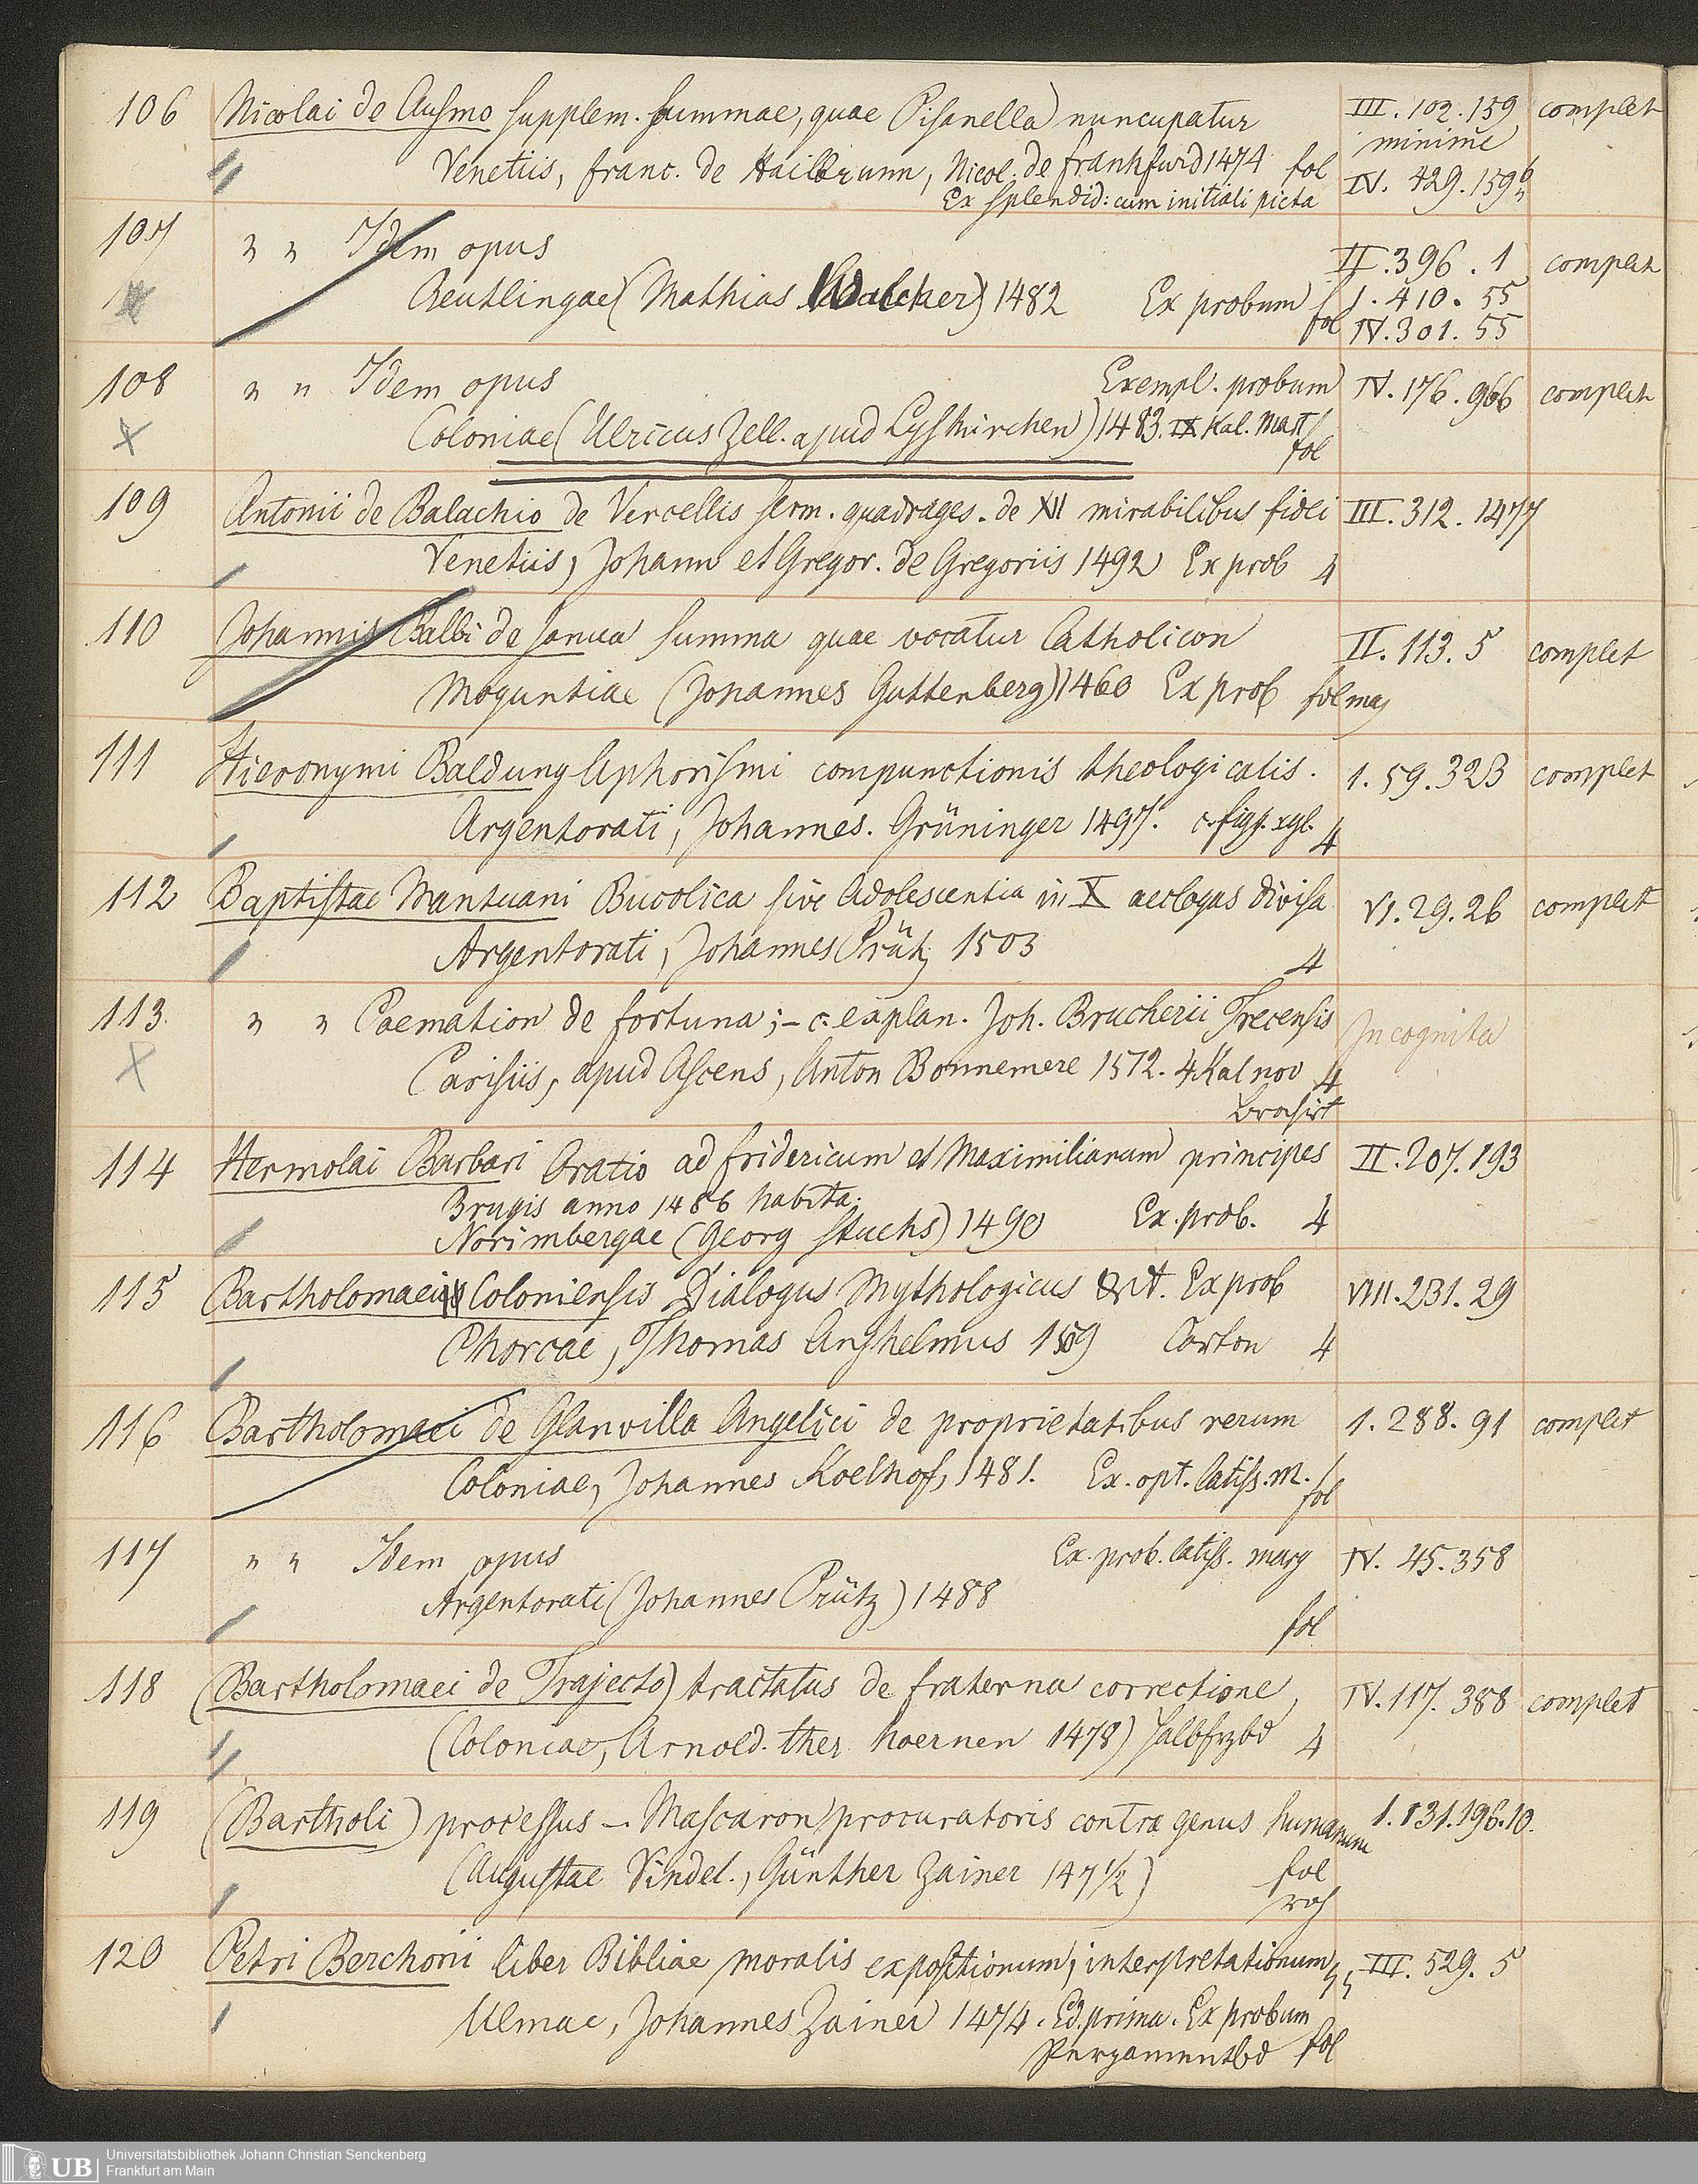 106 Nicolai de Ausmo supplem. summae, quae Pisanella nuncupatur III. 102. 159 complet
minime
Venetiis, Franc. de Hailbrunn, Nicol. de Frankfurd 1474 fol IV. 429. 159
Ex splendid: cum initiali picta
107 " " Idem opus II. 396. 1 complet
Reutlingae (Mathias 1482 Ex probum I. 410. 55
fol IV. 301. 55
108 " " Idem opus Exempl. probum IV. 176. 966 complet
Coloniae (Ulricus Zell. apud Lyskirchen) 1483. IX Kal. Mart
fol
109 Antonii de Balachio de Vercellis serm. quadrages. de XII mirabilibus fidei III. 312. 1477
Venetiis, Johann et Gregor. de Gregoriis 1492 Ex prob 4
110 Johannis Balbi de Janua summa quae vocatur Catholicon II. 113. 5 complet
Moguntiae (Johannes Guttenberg) 1460 Ex prob fol maj
111 Hieronymi Baldung Aphorismi compunctionis theologicalis. I. 59. 323 complet
Argentorati, Johannes. Grüninger 1497. c. figg. xyl. 4
112 Baptistae Mantuani Bucolica sive Adolescentia in X aeclogas divisa VI. 29. 26 complet
Argentorati, Johannes Prütz 1503 4
113. " " Poemation de fortuna; – c. explan. Joh. Brucherii Trecensis Incognita
Parisiis, apud Ascens, Anton Bonnemere 1512. 4 Kal nov 4
broshirt
114 Hermolai Barbari Oratio ad Fridericum et Maximilianum principes II. 207. 193
Brugis anno 1486 habita.
Norimbergae (Georg Stuchs) 1490 Ex. prob. 4
115 Bartholomaei Coloniensis Dialogus Mythologicus Ex prob VIII. 231. 29
Phorcae, Thomas Anshelmus Carton 4
116 Bartholomaei de Glanvilla Angelici de proprietatibus rerum I. 288. 91 complet
Coloniae, Johannes Koelhof, 1481. Ex. opt. latiss. m.
fol
117 " " Idem opus Ex. prob. latiss. marg IV. 45. 358
Argentorati (Johannes Prütz) 1488
fol
118 (Bartholomaei de Trajecto) tractatus de fraterna correctione, IV. 117. 388 complet
(Coloniae, Arnold. ther hoernen 1478) halbfrzbd 4
119 (Bartholi) processus – Mascaron procuratoris contra genus humanum I. 131. 196. 10.
(Augustae Vindel., Günther Zainer 147½) fol
120 Petri Berchorii liber Bibliae moralis expositionum, interpretationum III. 529. 5
Ulmae, Johannes Zainer 1474. Ed. prima. Ex probum
Pergamentbd fol
UB Universitätsbibliothek Johann Christian Senckenberg
Frankfurt am Main